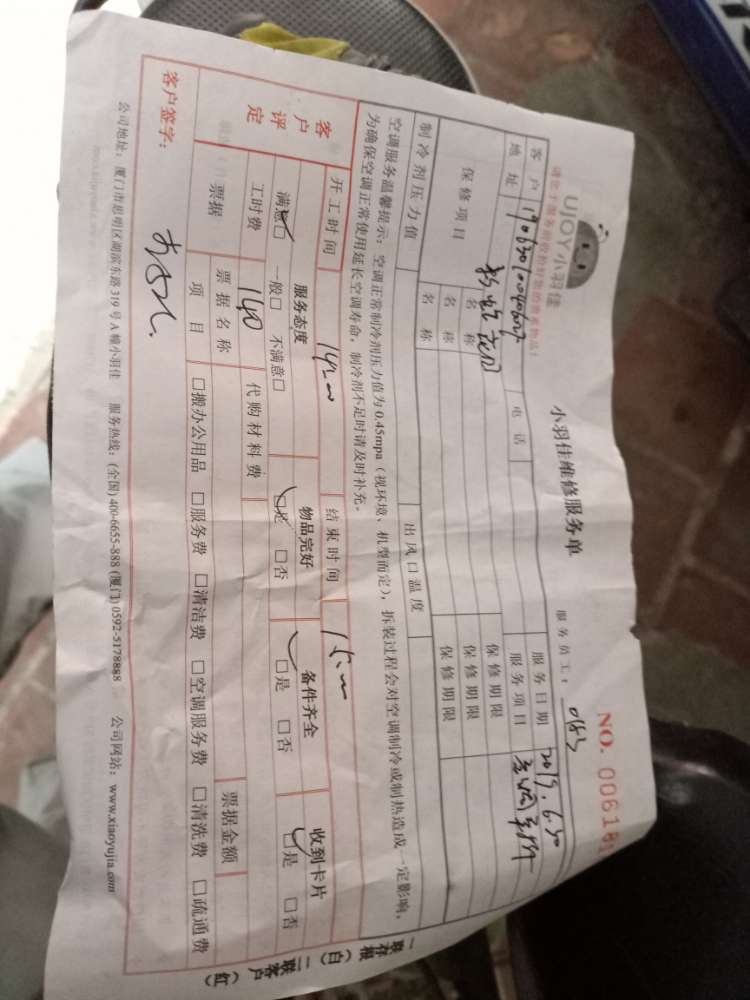 UJOY小羽佳
小羽佳维修服务单
NO. 006181
服务员工: 0183
客户 190630100040607 电话 服务日期 2019.6.30
地址 服务项目
保修项目 名称 保修期限
名称 保修期限
名称 保修期限
制冷剂压力值 出风口温度
空调服务温馨提示: 空调正常制冷剂压力值为0.45mpa (视环境、机型而定), 拆装过程会对空调制冷或制热造成一定影响,
为确保空调正常使用延长空调寿命, 制冷剂不足时请及时补充。
开工时间 14:00 结束时间 15:00
客户评定 服务态度 物品完好 备件齐全 收到卡片
满意□ 一般□ 不满意□ □是 □否 □是 □否 □是 □否
工时费 140 代购材料费
票据 票据名称 票据金额
项目 □搬办公用品 □服务费 □清洁费 □空调服务费 □清洗费 □疏通费
客户签字:
公司地址: 厦门市思明区湖滨东路319号A幢小羽佳 服务热线: (全国) 400-6655-888 (厦门) 0592-5178888 公司网站: www.xiaoyujia.com
一联存根 (白) 二联客户 (红)